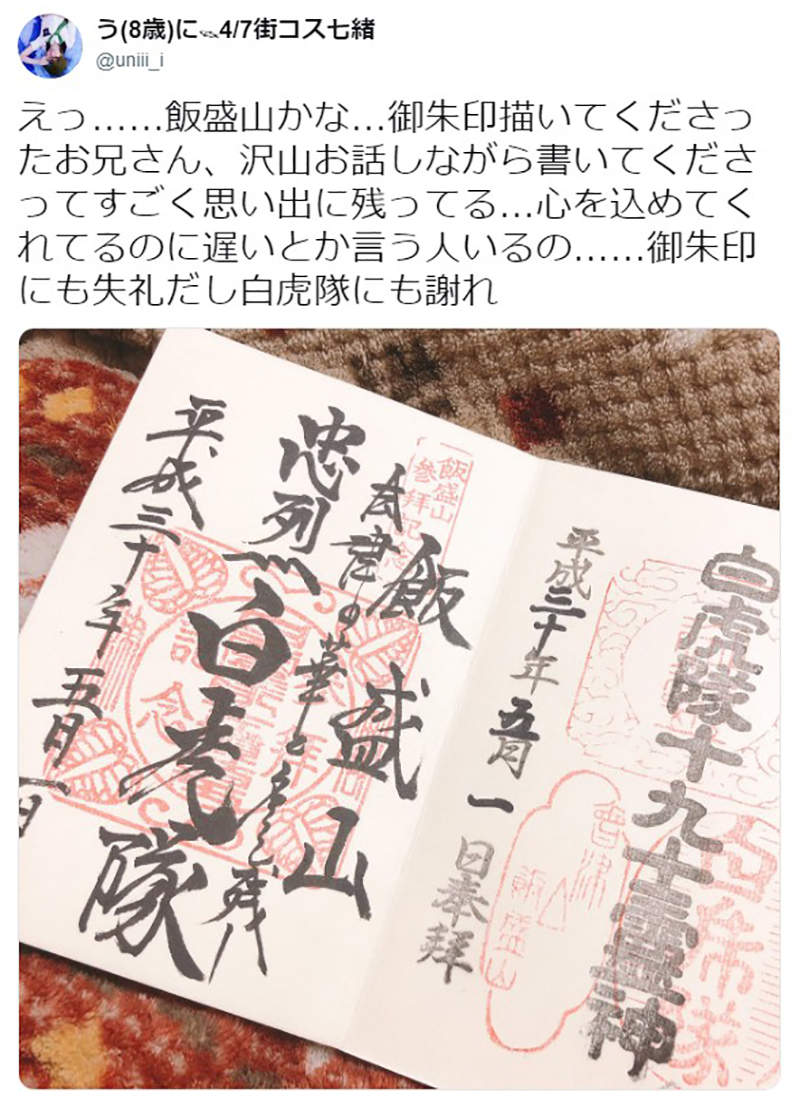 う(8歳)に 4/7街コス七緒
@uniii_i
えっ……飯盛山かな…御朱印描いてくださっ
たお兄さん、沢山お話しながら書いてくださ
ってすごく思い出に残ってる…心を込めてく
れてるのに遅いとか言う人いるの……御朱印
にも失礼だし白虎隊にも謝れ
白虎隊十九士霊神
平成三十年五月一日奉拝
會津
飯盛山
白虎隊
飯盛山
參拝記念
飯盛山
会津の華と名を残
忠烈
白虎隊
平成三十年五月一日